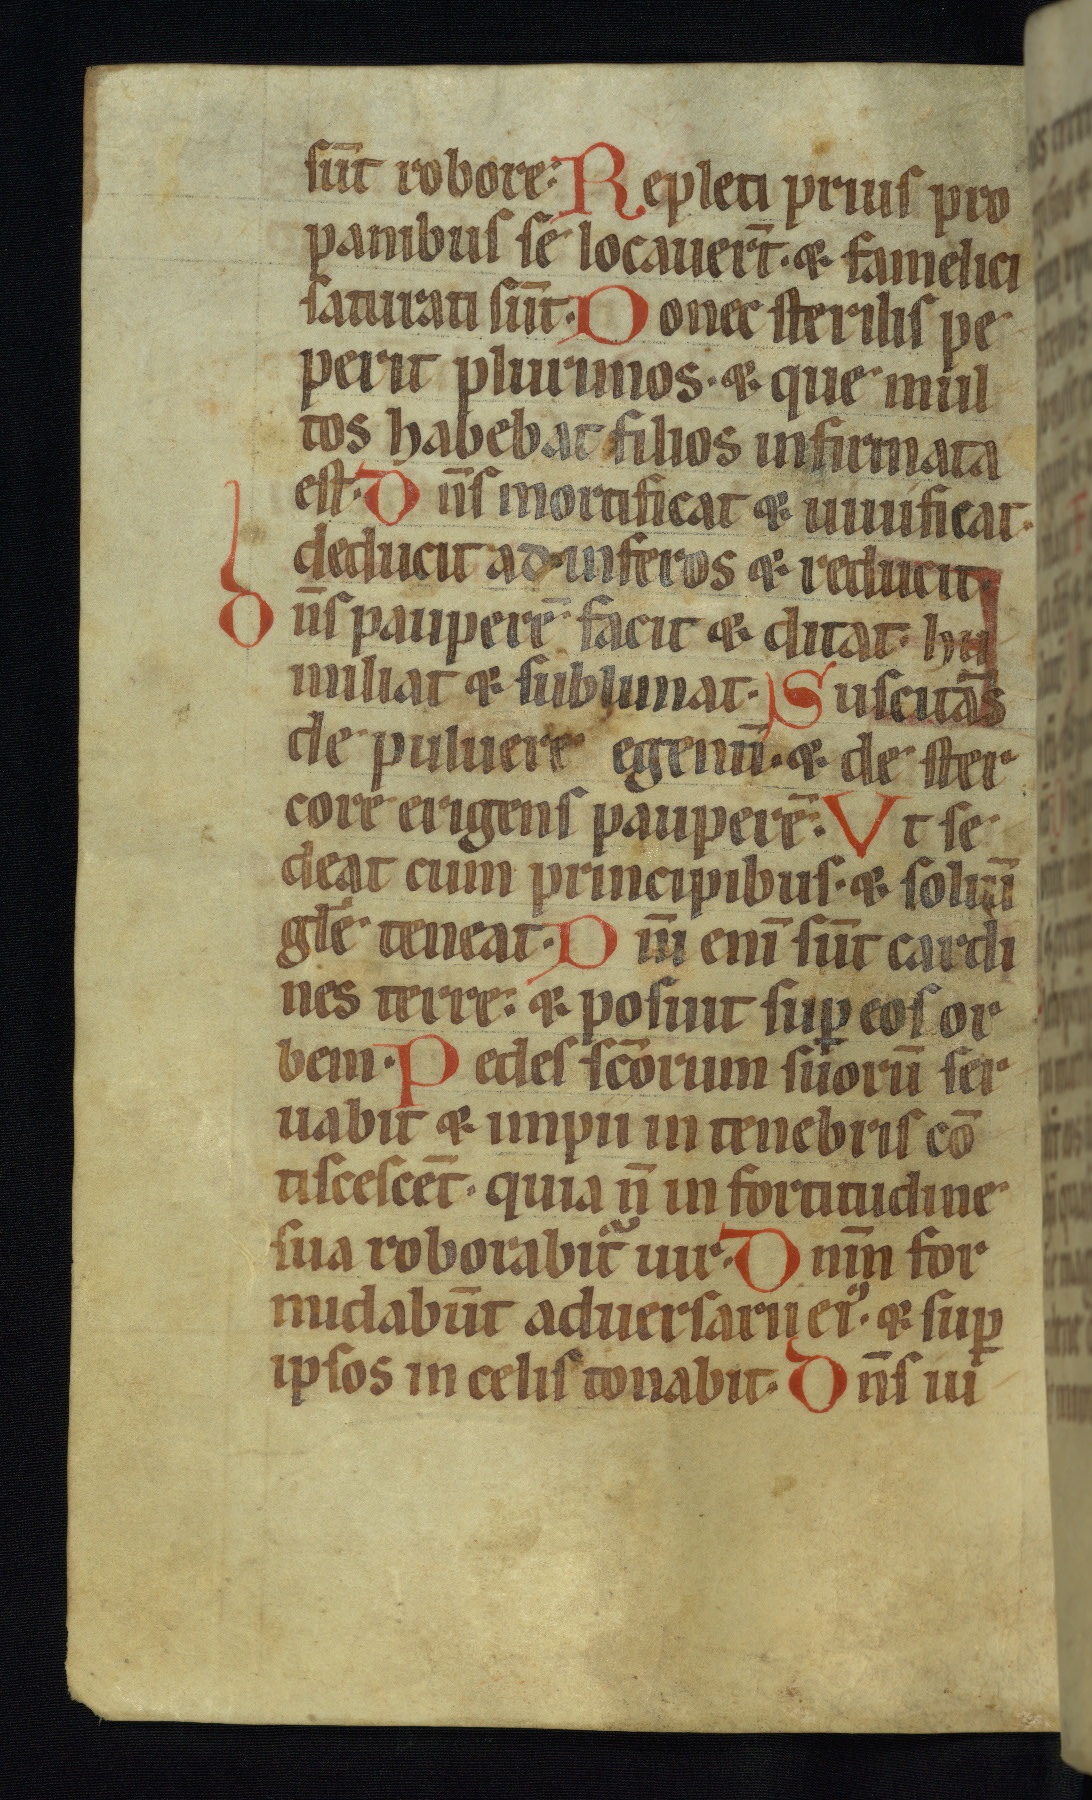 sūt robore· Repleti prius pro
panibus se locauer̄t· ⁊ famelici
saturati sūt· Donec sterilis pe
perit plurimos· ⁊ que mul
tos habebat filios infirmata
est· Dn̄s mortificat ⁊ uiuificat·
deducit ad inferos ⁊ reducit·
Dn̄s pauperē facit ⁊ ditat· hu
miliat ⁊ sublimat· Suscitās
de puluere egenū· ⁊ de ster
core erigens pauperē· Vt se
deat cum principibus· ⁊ soliū
gl̄e teneat· Dn̄i enī sūt cardi
nes terre· ⁊ posuit suꝑ eos or
bem· Pedes sc̄orum suorū ser
uabit ⁊ impii in tenebris cō
tiscescēt· quia n̄ in fortitudine
sua roborabit᷑ uir· Dn̄m for
midabūt aduersarii eiꝰ· ⁊ suꝑ
ipsos in celis tonabit· Dn̄s iu